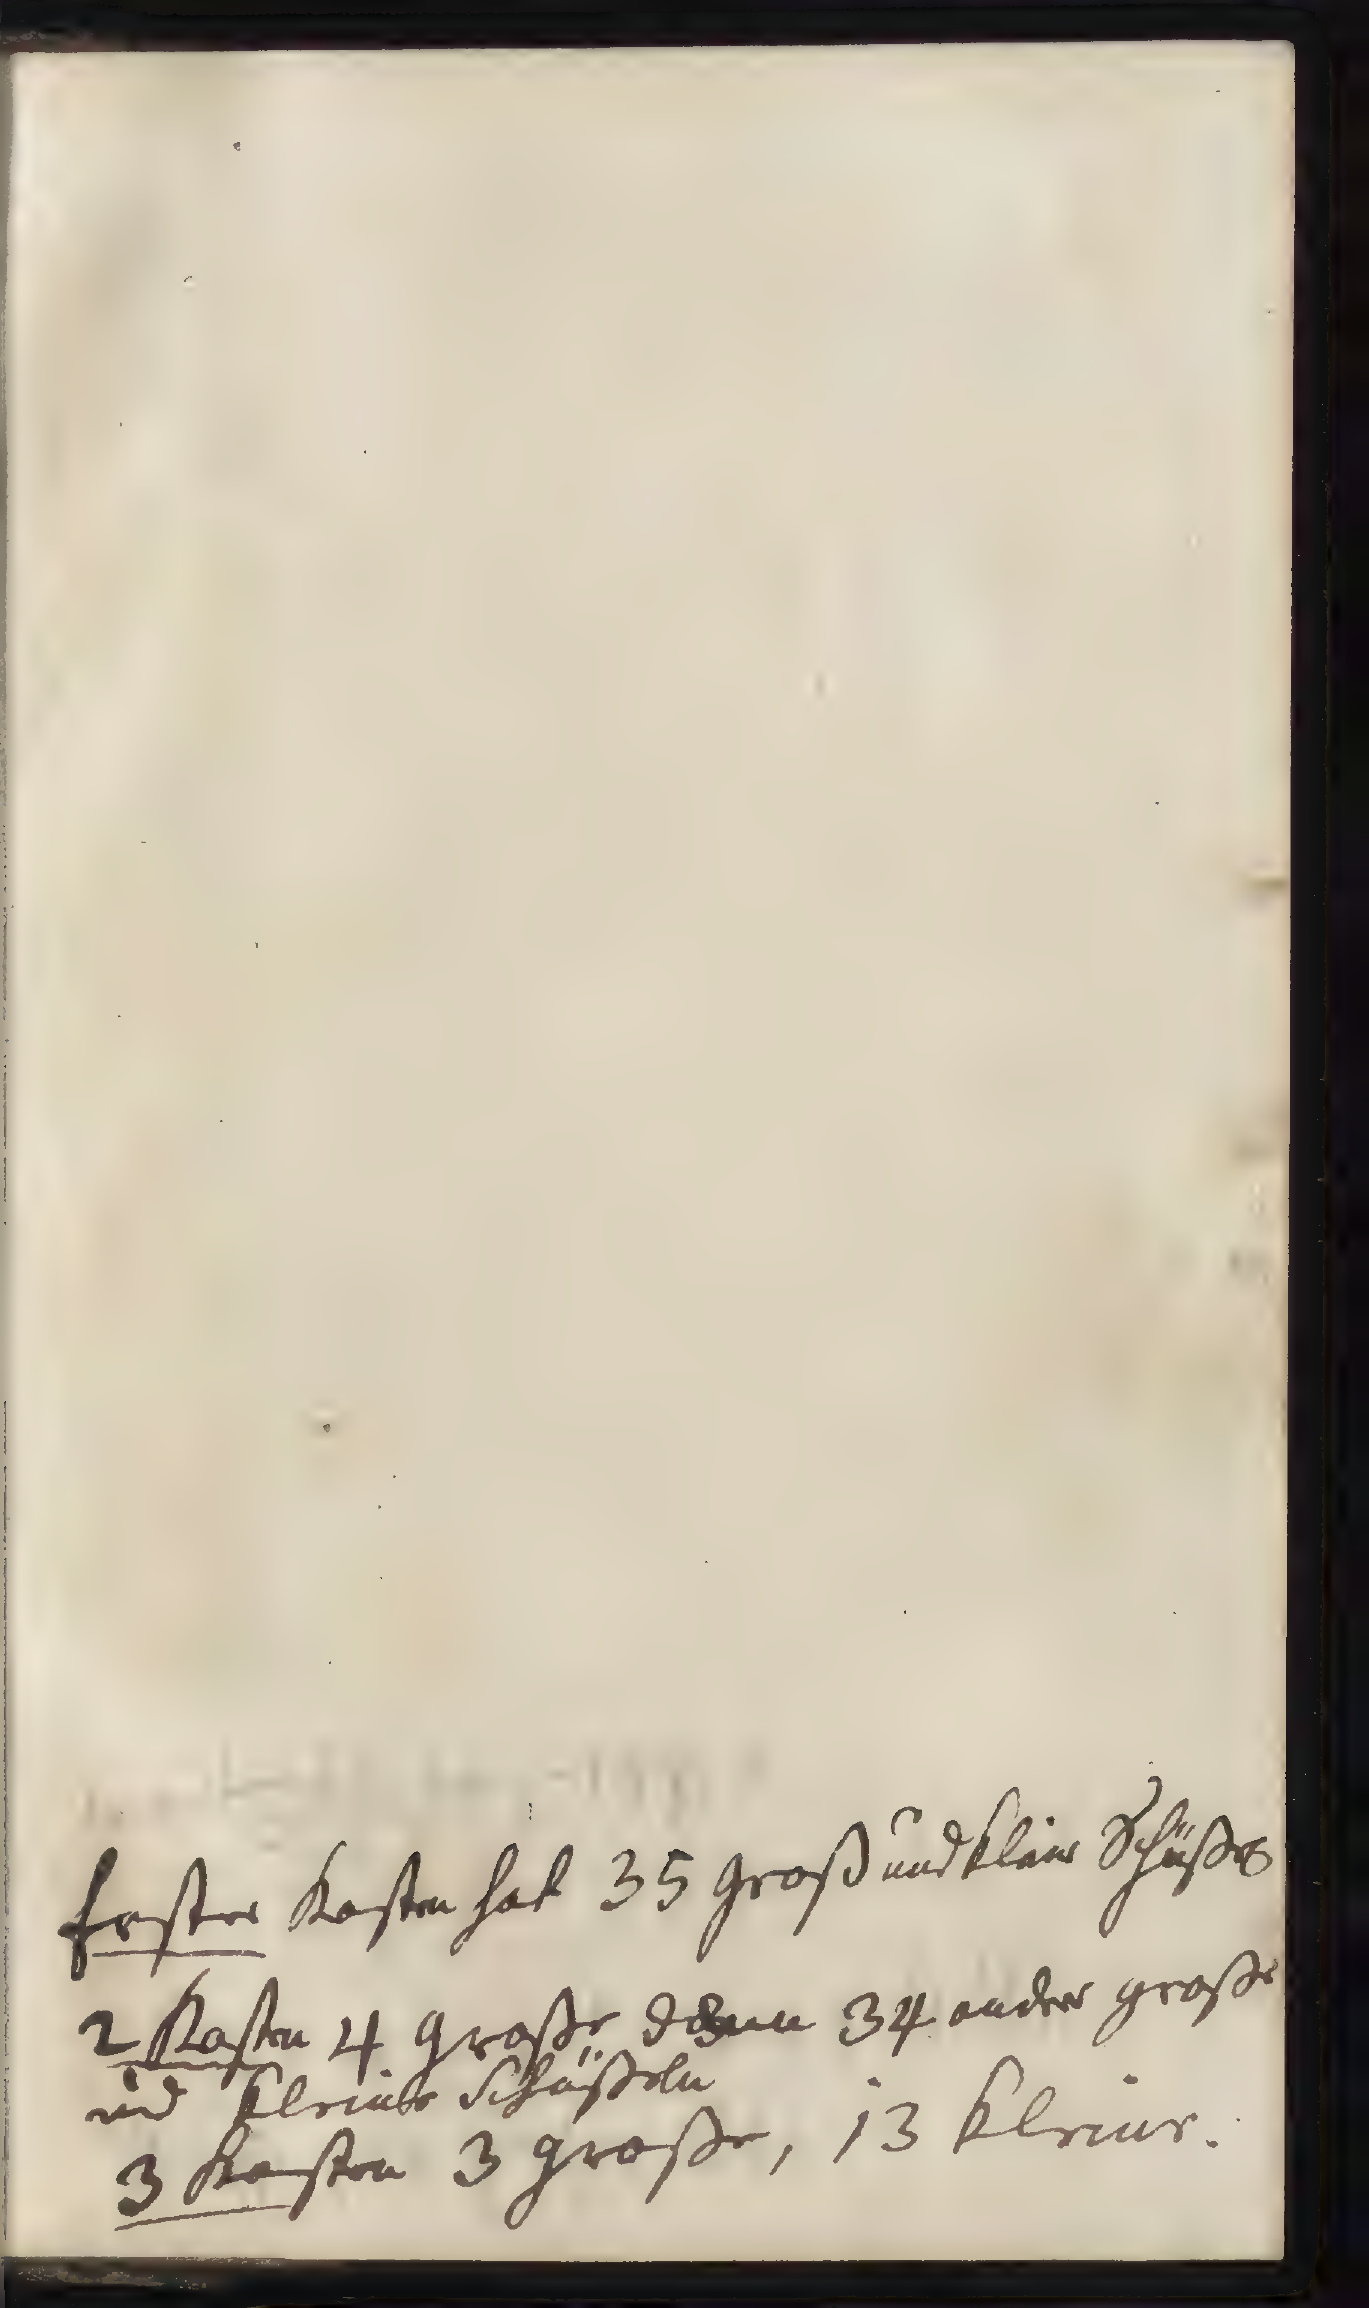 Erster Kasten hat 35 groß und kleine Schüße
2 Kasten 4 große dann 34 andere große
und kleine Schüßeln
3 Kasten 3 große, 13 kleine.